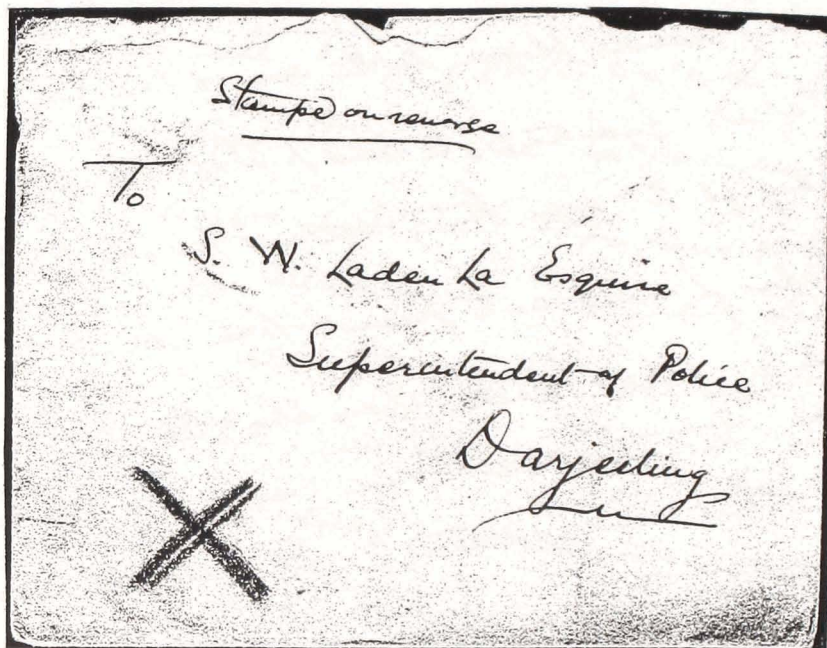 Stamps on reverse
To
S. W. Laden La Esquire
Superintendent of Police
Darjeeling